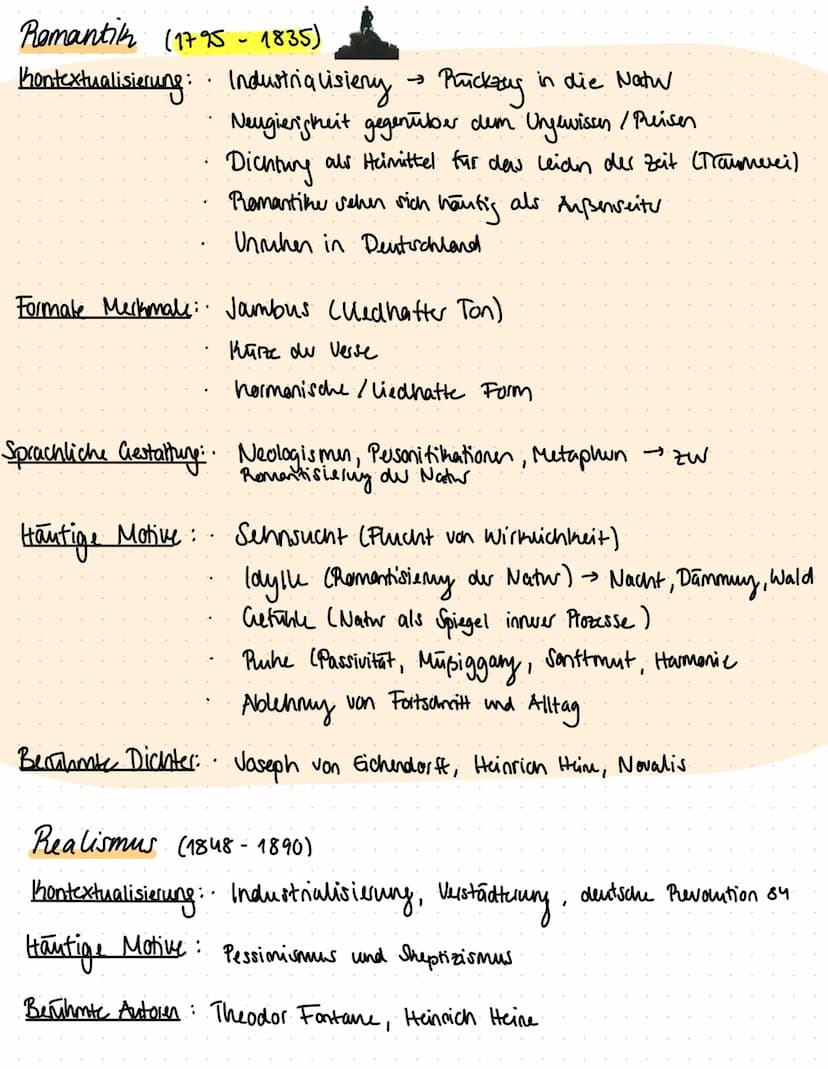 Romantik (1795 - 1835)
Kontextualisierung: · Industrialisierung → Rückzug in die Natur
· Neugierigkeit gegenüber dem Ungewissen / Reisen
· Dichtung als Heimittel für das Leiden der Zeit (Träumerei)
· Romantiker sehen sich häufig als Außenseiter
· Unruhen in Deutschland
Formale Merkmale: · Jambus (Liedhafter Ton)
· Kürze der Verse
· harmonische / liedhafte Form
Sprachliche Gestaltung: · Neologismen, Personifikationen, Metaphern → zur
Romantisierung der Natur
Häufige Motive: · Sehnsucht (Flucht von Wirklichkeit)
· Idylle (Romantisierung der Natur) → Nacht, Dämmung, Wald
· Gefühle (Natur als Spiegel innerer Prozesse)
· Ruhe (Passivität, Müßiggang, Sanftmut, Harmonie
· Ablehnung von Fortschritt und Alltag
Berühmte Dichter: · Joseph von Eichendorff, Heinrich Heine, Novalis
Realismus (1848 - 1890)
Kontextualisierung: · Industrialisierung, Verstädterung, deutsche Revolution
Häufige Motive: Pessimismus und Skeptizismus
Berühmte Autoren: Theodor Fontane, Heinrich Heine